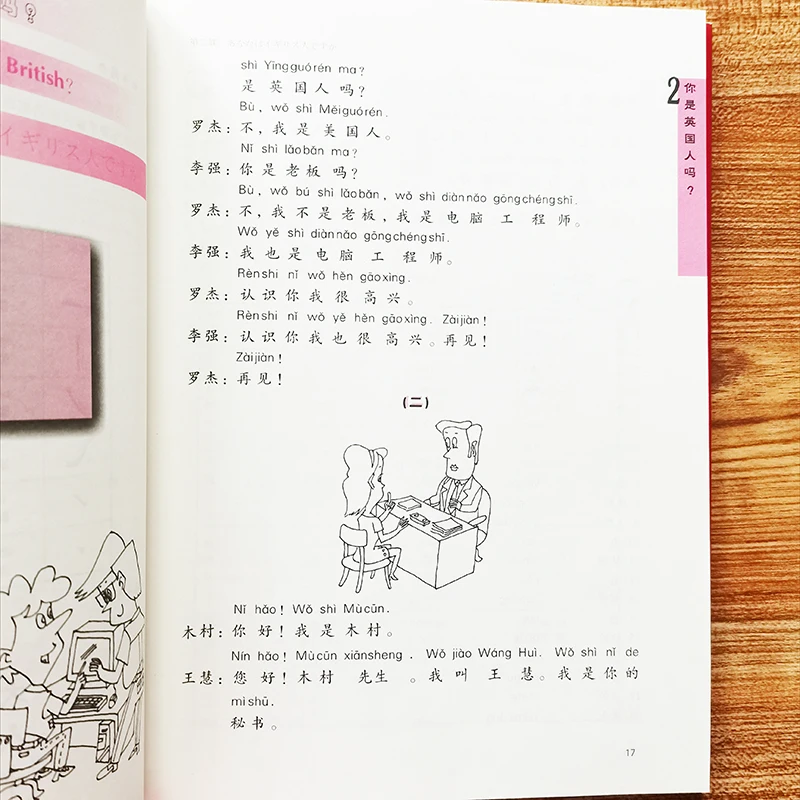 吗？
British?
イギリス人で
shì Yīngguórén ma?
是 英 国 人 吗？
Bù, wǒ shì Měiguórén.
罗杰：不，我 是 美 国 人。
Nǐ shì lǎobǎn ma?
李强：你 是 老 板 吗？
Bù, wǒ bú shì lǎobǎn, wǒ shì diànnǎo gōngchéngshī.
罗杰：不，我 不 是 老 板，我 是 电 脑 工 程 师。
Wǒ yě shì diànnǎo gōngchéngshī.
李强：我 也 是 电 脑 工 程 师。
Rènshi nǐ wǒ hěn gāoxìng.
罗杰：认 识 你 我 很 高 兴。
Rènshi nǐ wǒ yě hěn gāoxìng. Zàijiàn!
李强：认 识 你 我 也 很 高 兴。再 见！
Zàijiàn!
罗杰：再 见！
(二)
Nǐ hǎo! Wǒ shì Mùcūn.
木村：你 好！我 是 木 村。
Nín hǎo! Mùcūn xiānsheng. Wǒ jiào Wáng Huì. Wǒ shì nǐ de
王慧：您 好！木 村 先 生 。我 叫 王 慧。我 是 你 的
mìshū.
秘 书。
17
2
你是英国人吗？